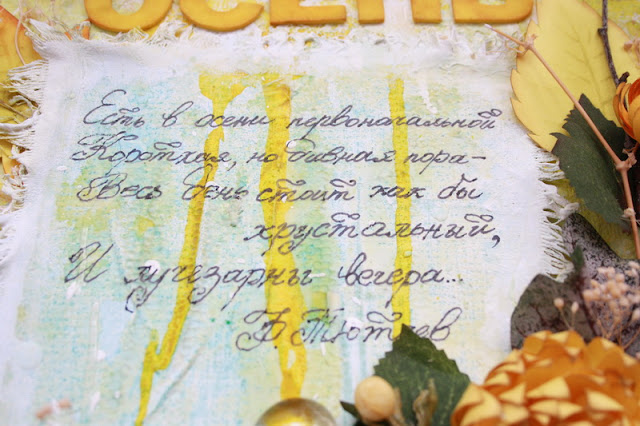 ОСЕНЬ
Есть в осени первоначальной
Короткая, но дивная пора –
Весь день стоит как бы
хрустальный,
И лучезарны вечера...
Ф. Тютчев